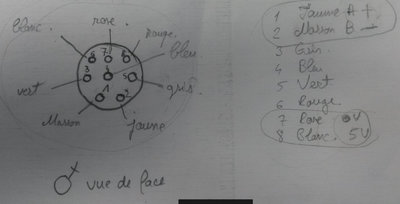 rose
blanc
Rouge
bleu
6 7 8
3 4 5
1 2
vert
gris
Masson
jaune
vue de face
1 Jaune A +
2 Masson B -
3 Gris
4 Bleu
5 Vert
6 Rouge
7 Rose 0V
8 Blanc 5V